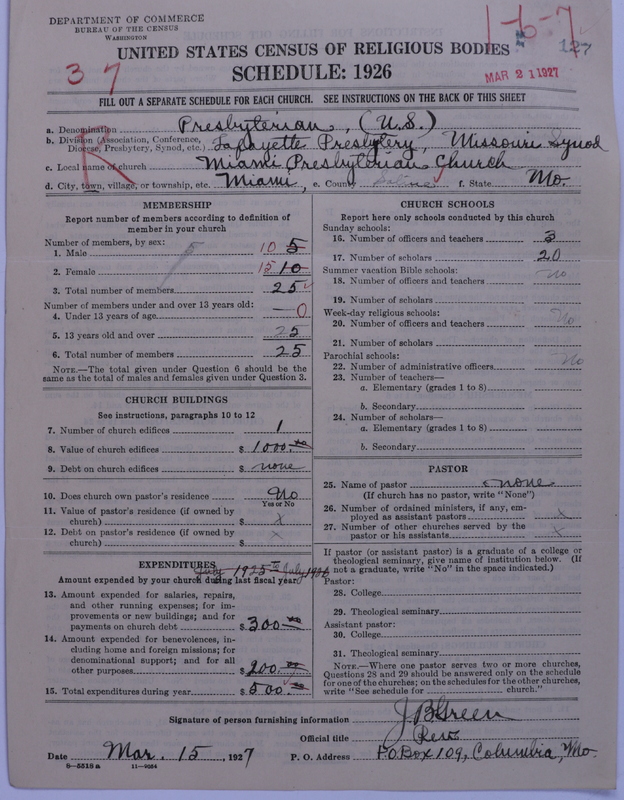 DEPARTMENT OF COMMERCE
BUREAU OF THE CENSUS
WASHINGTON
1-6-7
127
37
MAR 21 1927
UNITED STATES CENSUS OF RELIGIOUS BODIES
SCHEDULE: 1926
FILL OUT A SEPARATE SCHEDULE FOR EACH CHURCH. SEE INSTRUCTIONS ON THE BACK OF THIS SHEET
R
a. Denomination Presbyterian, (U.S.)
b. Division (Association, Conference, Diocese, Presbytery, Synod, etc.) Lafayette Presbytery, Missouri Synod
c. Local name of church Miami Presbyterian Church
d. City, town, village, or township, etc. Miami, e. County Saline f. State Mo.
MEMBERSHIP
Report number of members according to definition of
member in your church
Number of members, by sex:
1. Male 10 5
2. Female 15 10
3. Total number of members 25
Number of members under and over 13 years old:
4. Under 13 years of age — 0
5. 13 years old and over 25
6. Total number of members 25
NOTE.—The total given under Question 6 should be
same as the total of males and females given under Question 3.
CHURCH BUILDINGS
See instructions, paragraphs 10 to 12
7. Number of church edifices 1
8. Value of church edifices $ 1000.00
9. Debt on church edifices $ none
10. Does church own pastor's residence No
Yes or No
11. Value of pastor's residence (if owned by
church) $ x
12. Debt on pastor's residence (if owned by
church) $ x
EXPENDITURES
July 1925 to July 1926
Amount expended by your church during last fiscal year
13. Amount expended for salaries, repairs,
and other running expenses; for im-
provements or new buildings; and for
payments on church debt $ 300.00
14. Amount expended for benevolences, in-
cluding home and foreign missions; for
denominational support; and for all
other purposes $ 200.00
15. Total expenditures during year $ 500.00
CHURCH SCHOOLS
Report here only schools conducted by this church
Sunday schools:
16. Number of officers and teachers 3
17. Number of scholars 20
Summer vacation Bible schools:
18. Number of officers and teachers No
19. Number of scholars
Week-day religious schools:
20. Number of officers and teachers No
21. Number of scholars
Parochial schools:
22. Number of administrative officers No
23. Number of teachers—
a. Elementary (grades 1 to 8)
b. Secondary
24. Number of scholars—
a. Elementary (grades 1 to 8)
b. Secondary
PASTOR
25. Name of pastor none
(If church has no pastor, write "None")
26. Number of ordained ministers, if any, em-
ployed as assistant pastors x
27. Number of other churches served by the
pastor or his assistants x
If pastor (or assistant pastor) is a graduate of a college or
theological seminary, give name of institution below. (If
not a graduate, write "No" in the space indicated.)
Pastor:
28. College
29. Theological seminary
Assistant pastor:
30. College
31. Theological seminary
NOTE.—Where one pastor serves two or more churches,
Questions 28 and 29 should be answered only on the schedule
for one of the churches; on the schedules for the other churches,
write "See schedule for church."
Signature of person furnishing information J B Green
Official title Rev.
Date Mar. 15, 1927 P. O. Address P.O. Box 109, Columbia, Mo.
8—5518 a 11—9054